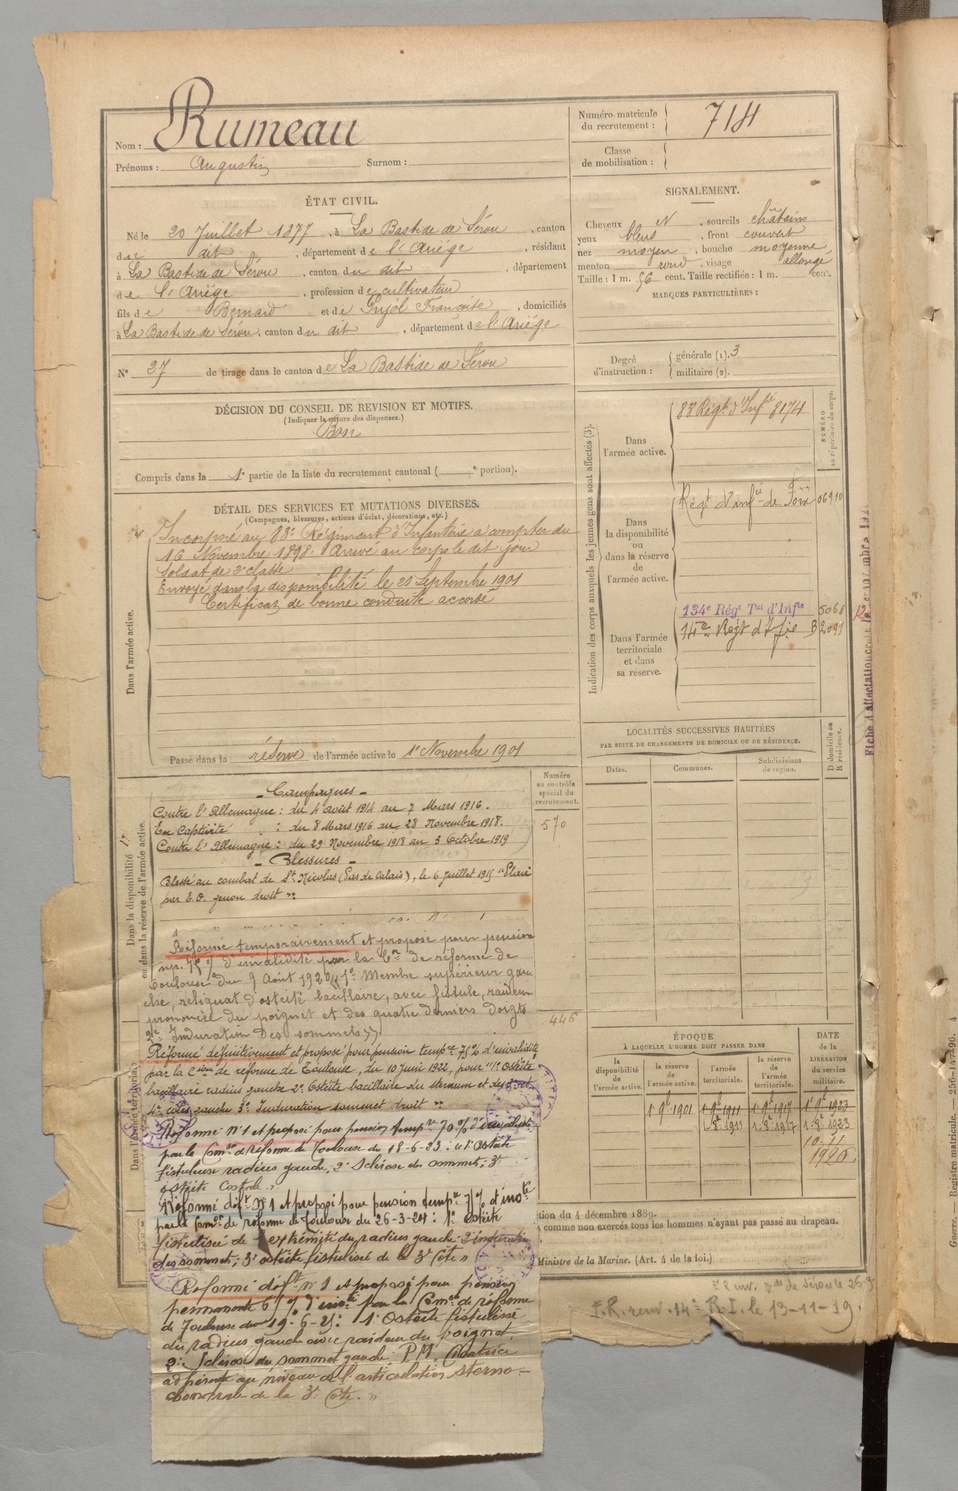 Nom : Rumeau
Prénoms : Augustin Surnom :
Numéro matricule du recrutement : 714
Classe de mobilisation :
ÉTAT CIVIL.
Né le 20 Juillet 1877, à La Bastide de Sérou, canton
du dit, département de l'Ariège, résidant
à La Bastide de Sérou, canton du dit, département
de l'Ariège, profession de cultivateur
fils de Bernard et de Pujol Françoise, domiciliés
à La Bastide de Sérou, canton du dit, département de l'Ariège
N° 27 de tirage dans le canton de La Bastide de Sérou
SIGNALEMENT.
Cheveux N, sourcils châtains
yeux bleus, front couvert
nez moyen, bouche moyenne,
menton rond, visage allongé
Taille : 1 m. 56 cent. Taille rectifiée : 1 m. cent.
MARQUES PARTICULIÈRES :
Degré d'instruction : générale (1). 3
militaire (2).
DÉCISION DU CONSEIL DE REVISION ET MOTIFS.
(Indiquer la nature des dispenses.)
Bon
Compris dans la 1e partie de la liste du recrutement cantonal ( e portion).
DÉTAIL DES SERVICES ET MUTATIONS DIVERSES.
(Campagnes, blessures, actions d'éclat, décorations, etc.)
Dans l'armée active.
Incorporé au 83e Régiment d'Infanterie à compter du
16 Novembre 1898. Arrivé au corps le dit jour
Soldat de 2e classe
Envoyé dans la disponibilité le 21 Septembre 1901
Certificat de bonne conduite accordé
Passé dans la réserve de l'armée active le 1er Novembre 1901
Indication des corps auxquels les jeunes gens sont affectés (3).
NUMÉRO au répertoire du corps.
Dans l'armée active.
83e Régt d'Infie 8174
Dans la disponibilité ou dans la réserve de l'armée active.
Régt d'infie de Foix 06910
Dans l'armée territoriale et dans sa réserve.
134e Régt Tal d'Infie 5068
14e Régt d'Ifie B 2091
LOCALITÉS SUCCESSIVES HABITÉES
PAR SUITE DE CHANGEMENTS DE DOMICILE OU DE RÉSIDENCE.
Dates. Communes. Subdivisions de région. D domicile ou R résidence.
Numéro au contrôle spécial du recrutement.
570
446
Dans la disponibilité ou dans la réserve de l'armée active.
- Campagnes -
Contre l'Allemagne : du 4 août 1914 au 7 Mars 1916.
En Captivité : du 8 Mars 1916 au 28 Novembre 1918.
Contre l'Allemagne : du 29 Novembre 1918 au 3 Octobre 1919
- Blessures -
Blessé au combat de St Nicolas (Pas de Calais), le 6 Juillet 1915
par E.O. genou droit "
Réformé temporairement et proposé pour pension
75% d'invalidité par la Con de réforme de
Toulouse du 9 Août 1920 1° Membre supérieur gau
che, reliquat d'ostéité bacillaire, avec fistule, raideur
prononcée du poignet et des quatre derniers doigts
2° Induration des sommets
Réformé définitivement et proposé pour pension tempre 75% d'invalidité
par la Cion de réforme de Toulouse, du 10 Juin 1922, pour "1° Ostéite
bacillaire radius gauche 2° Ostéite bacillaire du sternum et des
4e côtes gauche 3° Induration sommet droit "
Réformé N°1 et proposé pour pension tempre 70% d'invalidité
par la Comon de réforme de Toulouse du 18-6-23 : 1° ostéite
fistuleuse radius gauche, 2° sclérose du sommet, 3°
ostéite costale "
Réformé déft N°1 et proposé pour pension tempre 75% d'invté
par la Comon de réforme de Toulouse du 26-3-24 : 1° ostéite
fistulisée de l'extrémité du radius gauche 2° induration
des sommets ; 3° ostéite fistulisée de la 3e Côte "
Réformé déft n°1 et proposé pour pension
permanente 65% d'invté par la Comon de réforme
de Toulouse du 19-6-25 : 1° ostéite fistulisée
du radius gauche avec raideur du poignet.
2° Sclérose du sommet gauche. P.M. Cicatrice
adhérente au niveau de l'articulation sterno-
chondrale de la 3e Côte. "
Dans l'armée territoriale.
ÉPOQUE
À LAQUELLE L'HOMME DOIT PASSER DANS
la disponibilité de l'armée active. la réserve de l'armée active. l'armée territoriale. la réserve de l'armée territoriale.
DATE de la LIBÉRATION du service militaire.
1 9bre 1901 1 9bre 1911 1 9bre 1917 1 9bre 1923
1 8bre 1911 1 8bre 1917 1 8bre 1923
10-11
1926
tion du 4 décembre 1889.
à comme non exercés tous les hommes n'ayant pas passé au drapeau.
Ministre de la Marine. (Art. 4 de la loi.)
F.R. renv. 14e R.I. le 13-11-19.
Garrre. — Registre matricule. — 256-147-90. 4